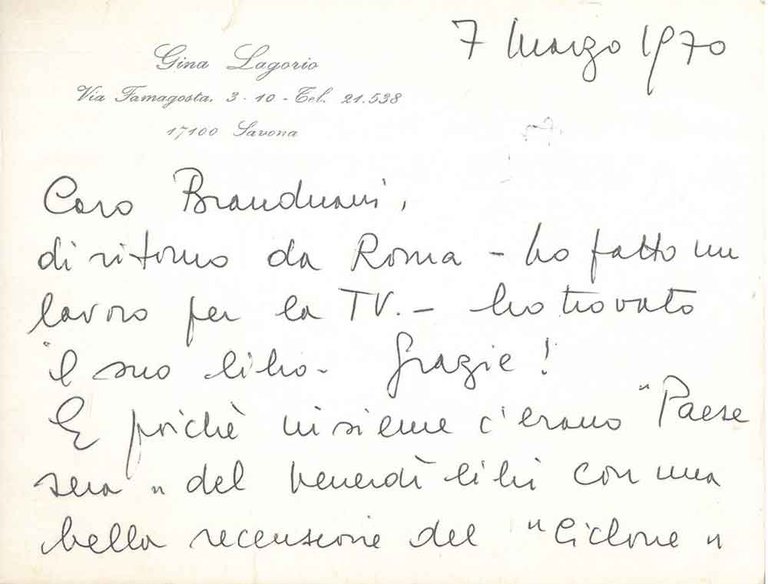 Gina Lagorio
Via Famagosta, 3 - 10 - Tel. 21.538
17100 Savona
7 Marzo 1970
Caro Branduani,
di ritorno da Roma - ho fatto un
lavoro per la TV. - ho trovato
il suo libro. Grazie!
E poichè insieme c'erano "Paese
sera" del venerdì libri con una
bella recensione del "Ciclone"